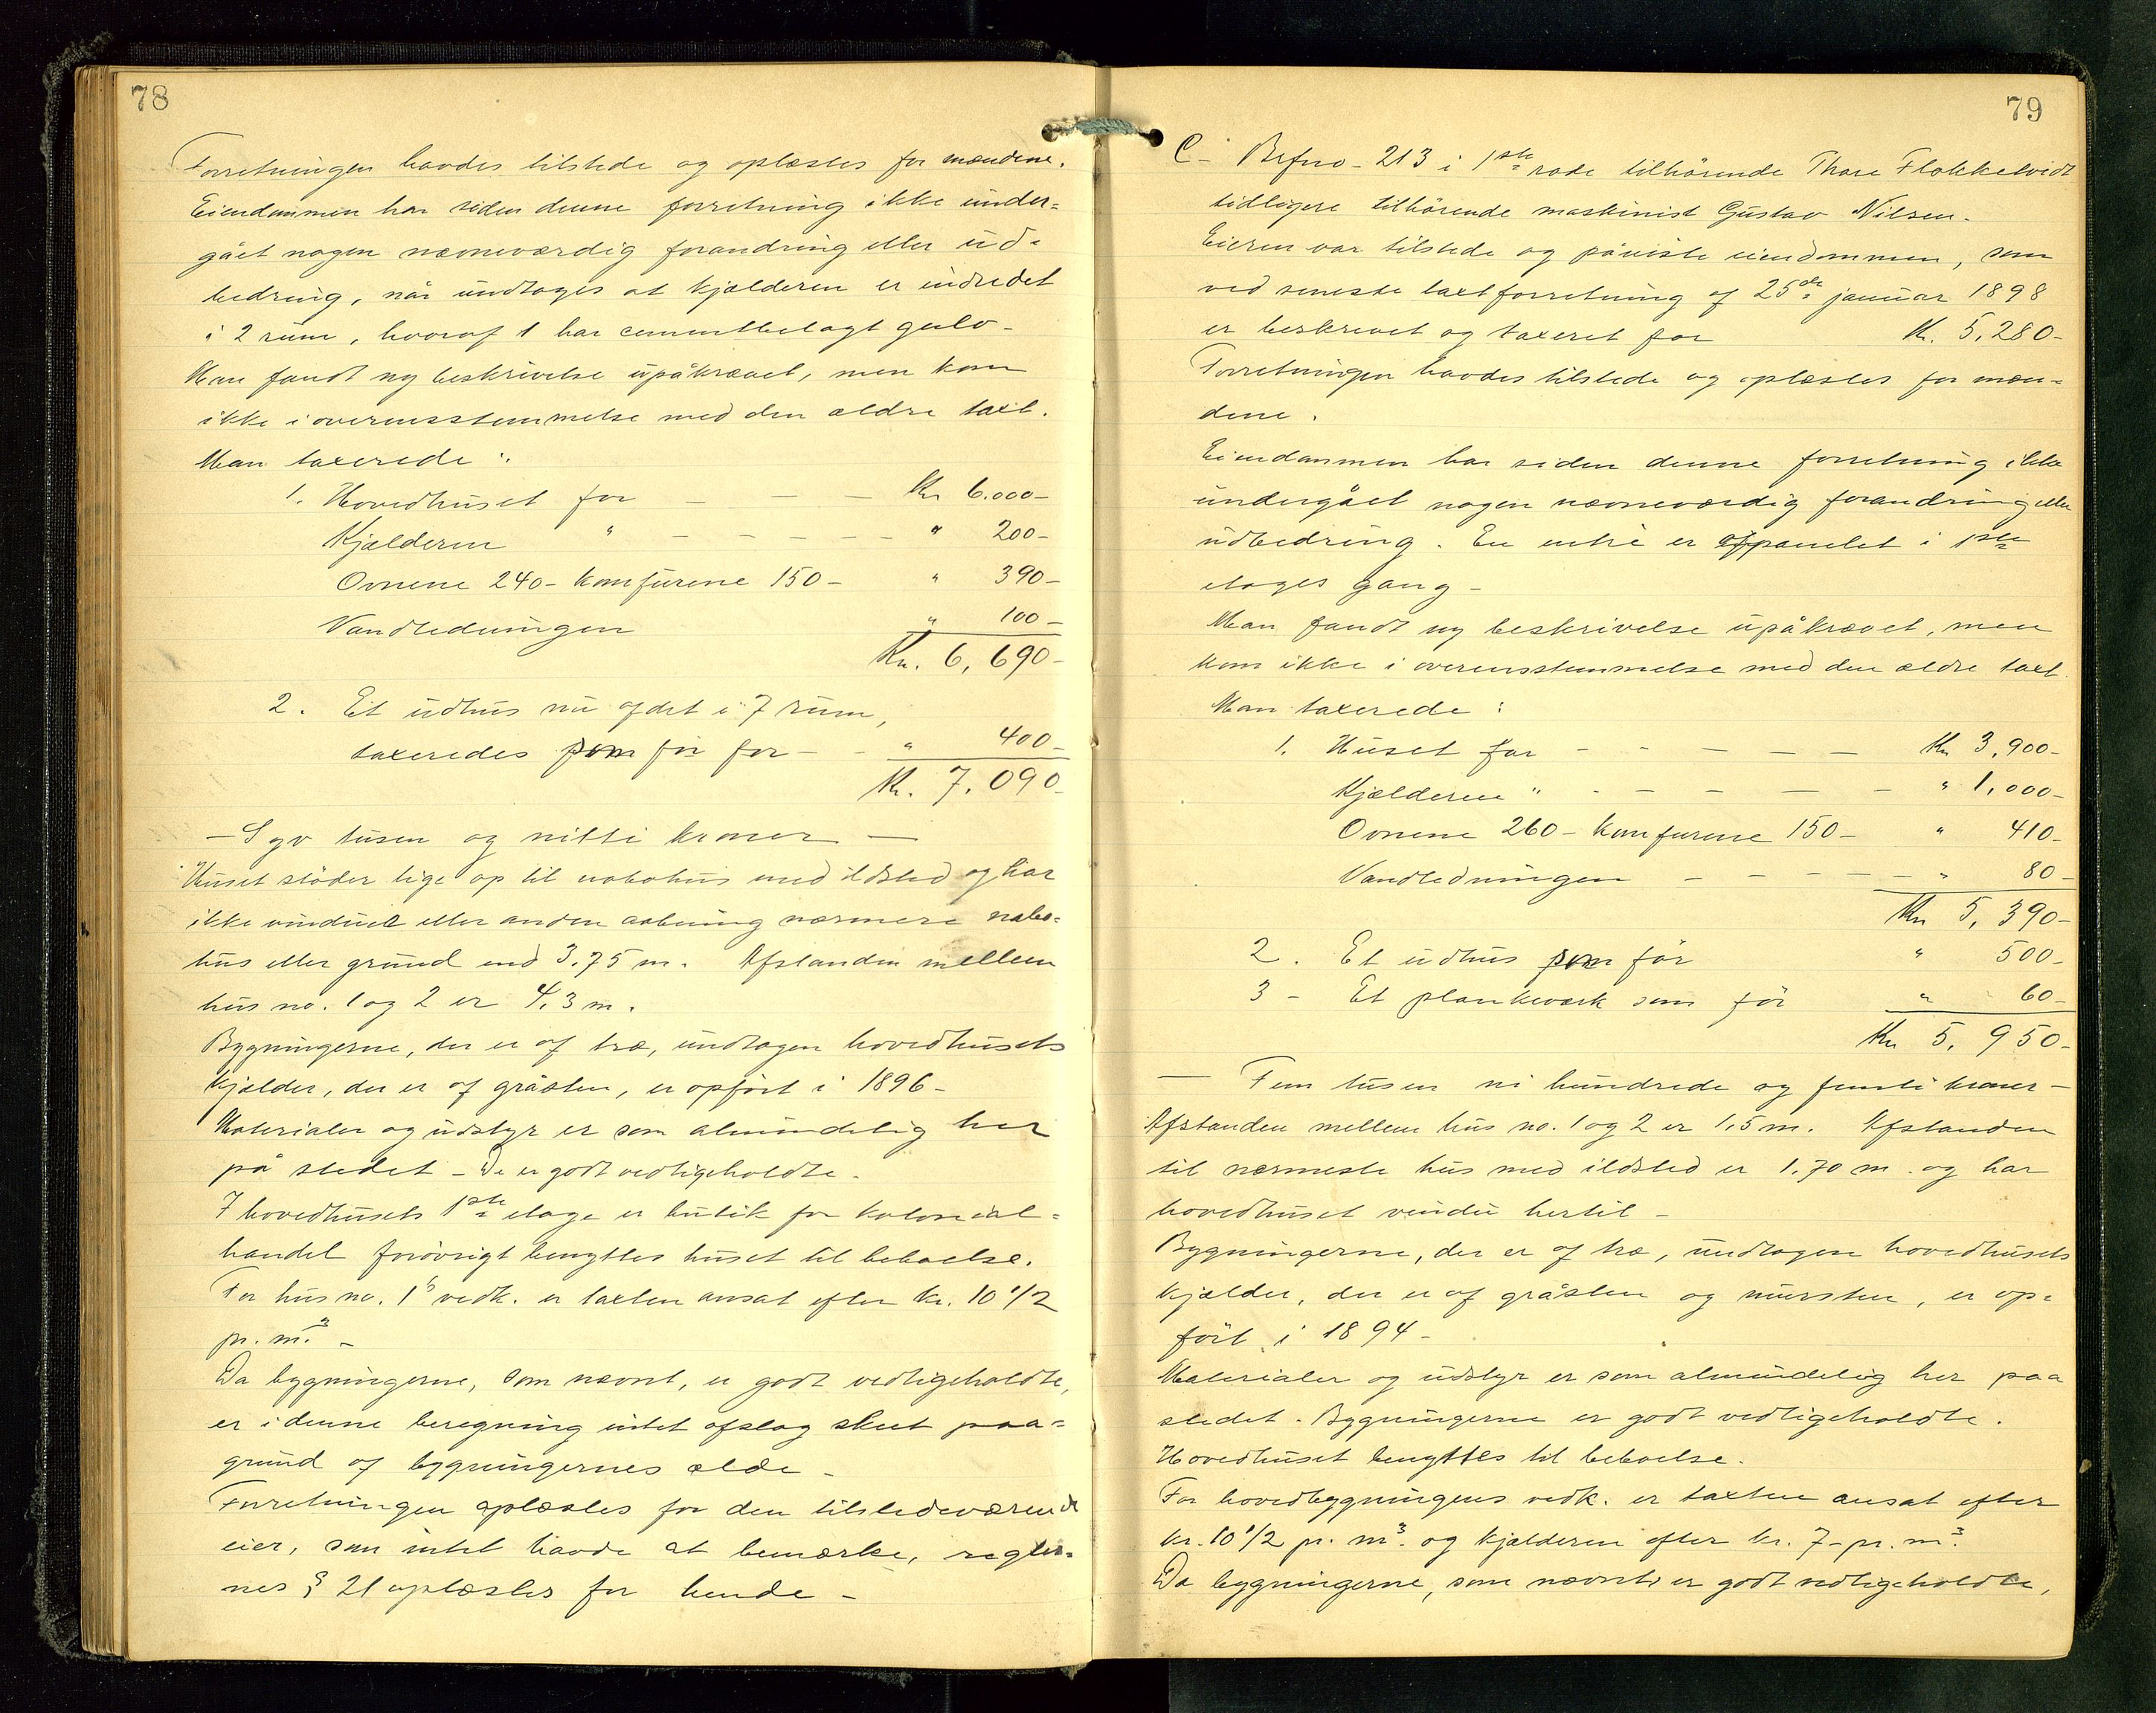 78
Forretningen havdes tilstede og oplæstes for mændene.
Eiendommen har siden denne forretning ikke under-
gået nogen nævneværdig forandring eller ud-
bedring, når undtages at kjælderen er indredet
i 2 rum, hvoraf 1 har cementbelagt gulv -
Man fandt ny beskrivelse upåkrævet, men kom
ikke i overensstemmelse med den ældre taxt.
Man taxerede:
1. Hovedhuset for - - - Kr 6.000-
Kjælderen " - - - - - " 200-
Ovnene 240- komfurene 150- " 390-
Vandledningen " 100-
Kr. 6,690-
2. Et udhus nu afdet i 7 rum,
taxeredes som før for - - " 400-
Kr. 7.090-
- Syv tusen og nitti kroner -
Huset støder lige op til nabohus med ildsted og har
ikke vinduer eller anden aabning nærmere nabo-
hus eller grund end 3.75 m. Afstanden mellem
hus no. 1 og 2 er 4,3 m.
Bygningerne, der er af træ, undtagen hovedhusets
kjælder, der er af gråsten, er opført i 1896-
Materialer og udstyr er som almindelig her
på stedet - De er godt vedligeholdte.
I hovedhusets 1ste etage er butik for kolonial-
handel forøvrigt benyttes huset til beboelse.
For hus no. 1s vedk. er taxten ansat efter kr. 10 1/2
pr. m.3 -
Da bygningerne, som nævnt, er godt vedligeholdte,
er i denne beregning intet afslag skeet paa-
grund af bygningernes ælde -
Forretningen oplæstes for den tilstedeværende
eier, som intet havde at bemærke, regler-
nes § 21 oplæstes for hende -
79
C - Brfno - 213 i 1ste rode tilhørende Thore Flakketvedt
tidligere tilhørende maskinist Gustav Nilsen.
Eieren var tilstede og påviste eiendommen, som
ved seneste taxtforretning af 25de januar 1898
er beskrevet og taxeret for Kr. 5,280-
Forretningen havdes tilstede og oplæstes for mæn-
dene.
Eiendommen har siden denne forretning ikke
undergået nogen nævneværdig forandring eller
udbedring. En entré er afpanelet i 1ste
etages gang -
Man fandt ny beskrivelse upåkrævet, men
kom ikke i overensstemmelse med den ældre taxt.
Man taxerede:
1. Huset for - - - - - Kr 3,900-
Kjælderen " - - - - - " 1.000-
Ovnene 260- komfurene 150- " 410-
Vandledningen - - - - - " 80-
Kr 5,390-
2. Et udhus som før " 500-
3 - Et plankeværk som før " 60-
Kr 5,950-
- Fem tusen ni hundrede og femti kroner -
Afstanden mellem hus no. 1 og 2 er 1,5 m. Afstanden
til nærmeste hus med ildsted er 1,70 m. og har
hovedhuset vindu hertil -
Bygningerne, der er af træ, undtagen hovedhusets
kjælder, der er af gråsten og mursten, er op-
ført i 1894-
Materialer og udstyr er som almindelig her paa
stedet. Bygningerne er godt vedligeholdte.
Hovedhuset benyttes til beboelse.
For hovedbygningens vedk. er taxten ansat efter
kr. 10 1/2 pr. m3. og kjælderen efter kr. 7- pr. m3.
Da bygningerne, som nævnt er godt vedligeholdte,